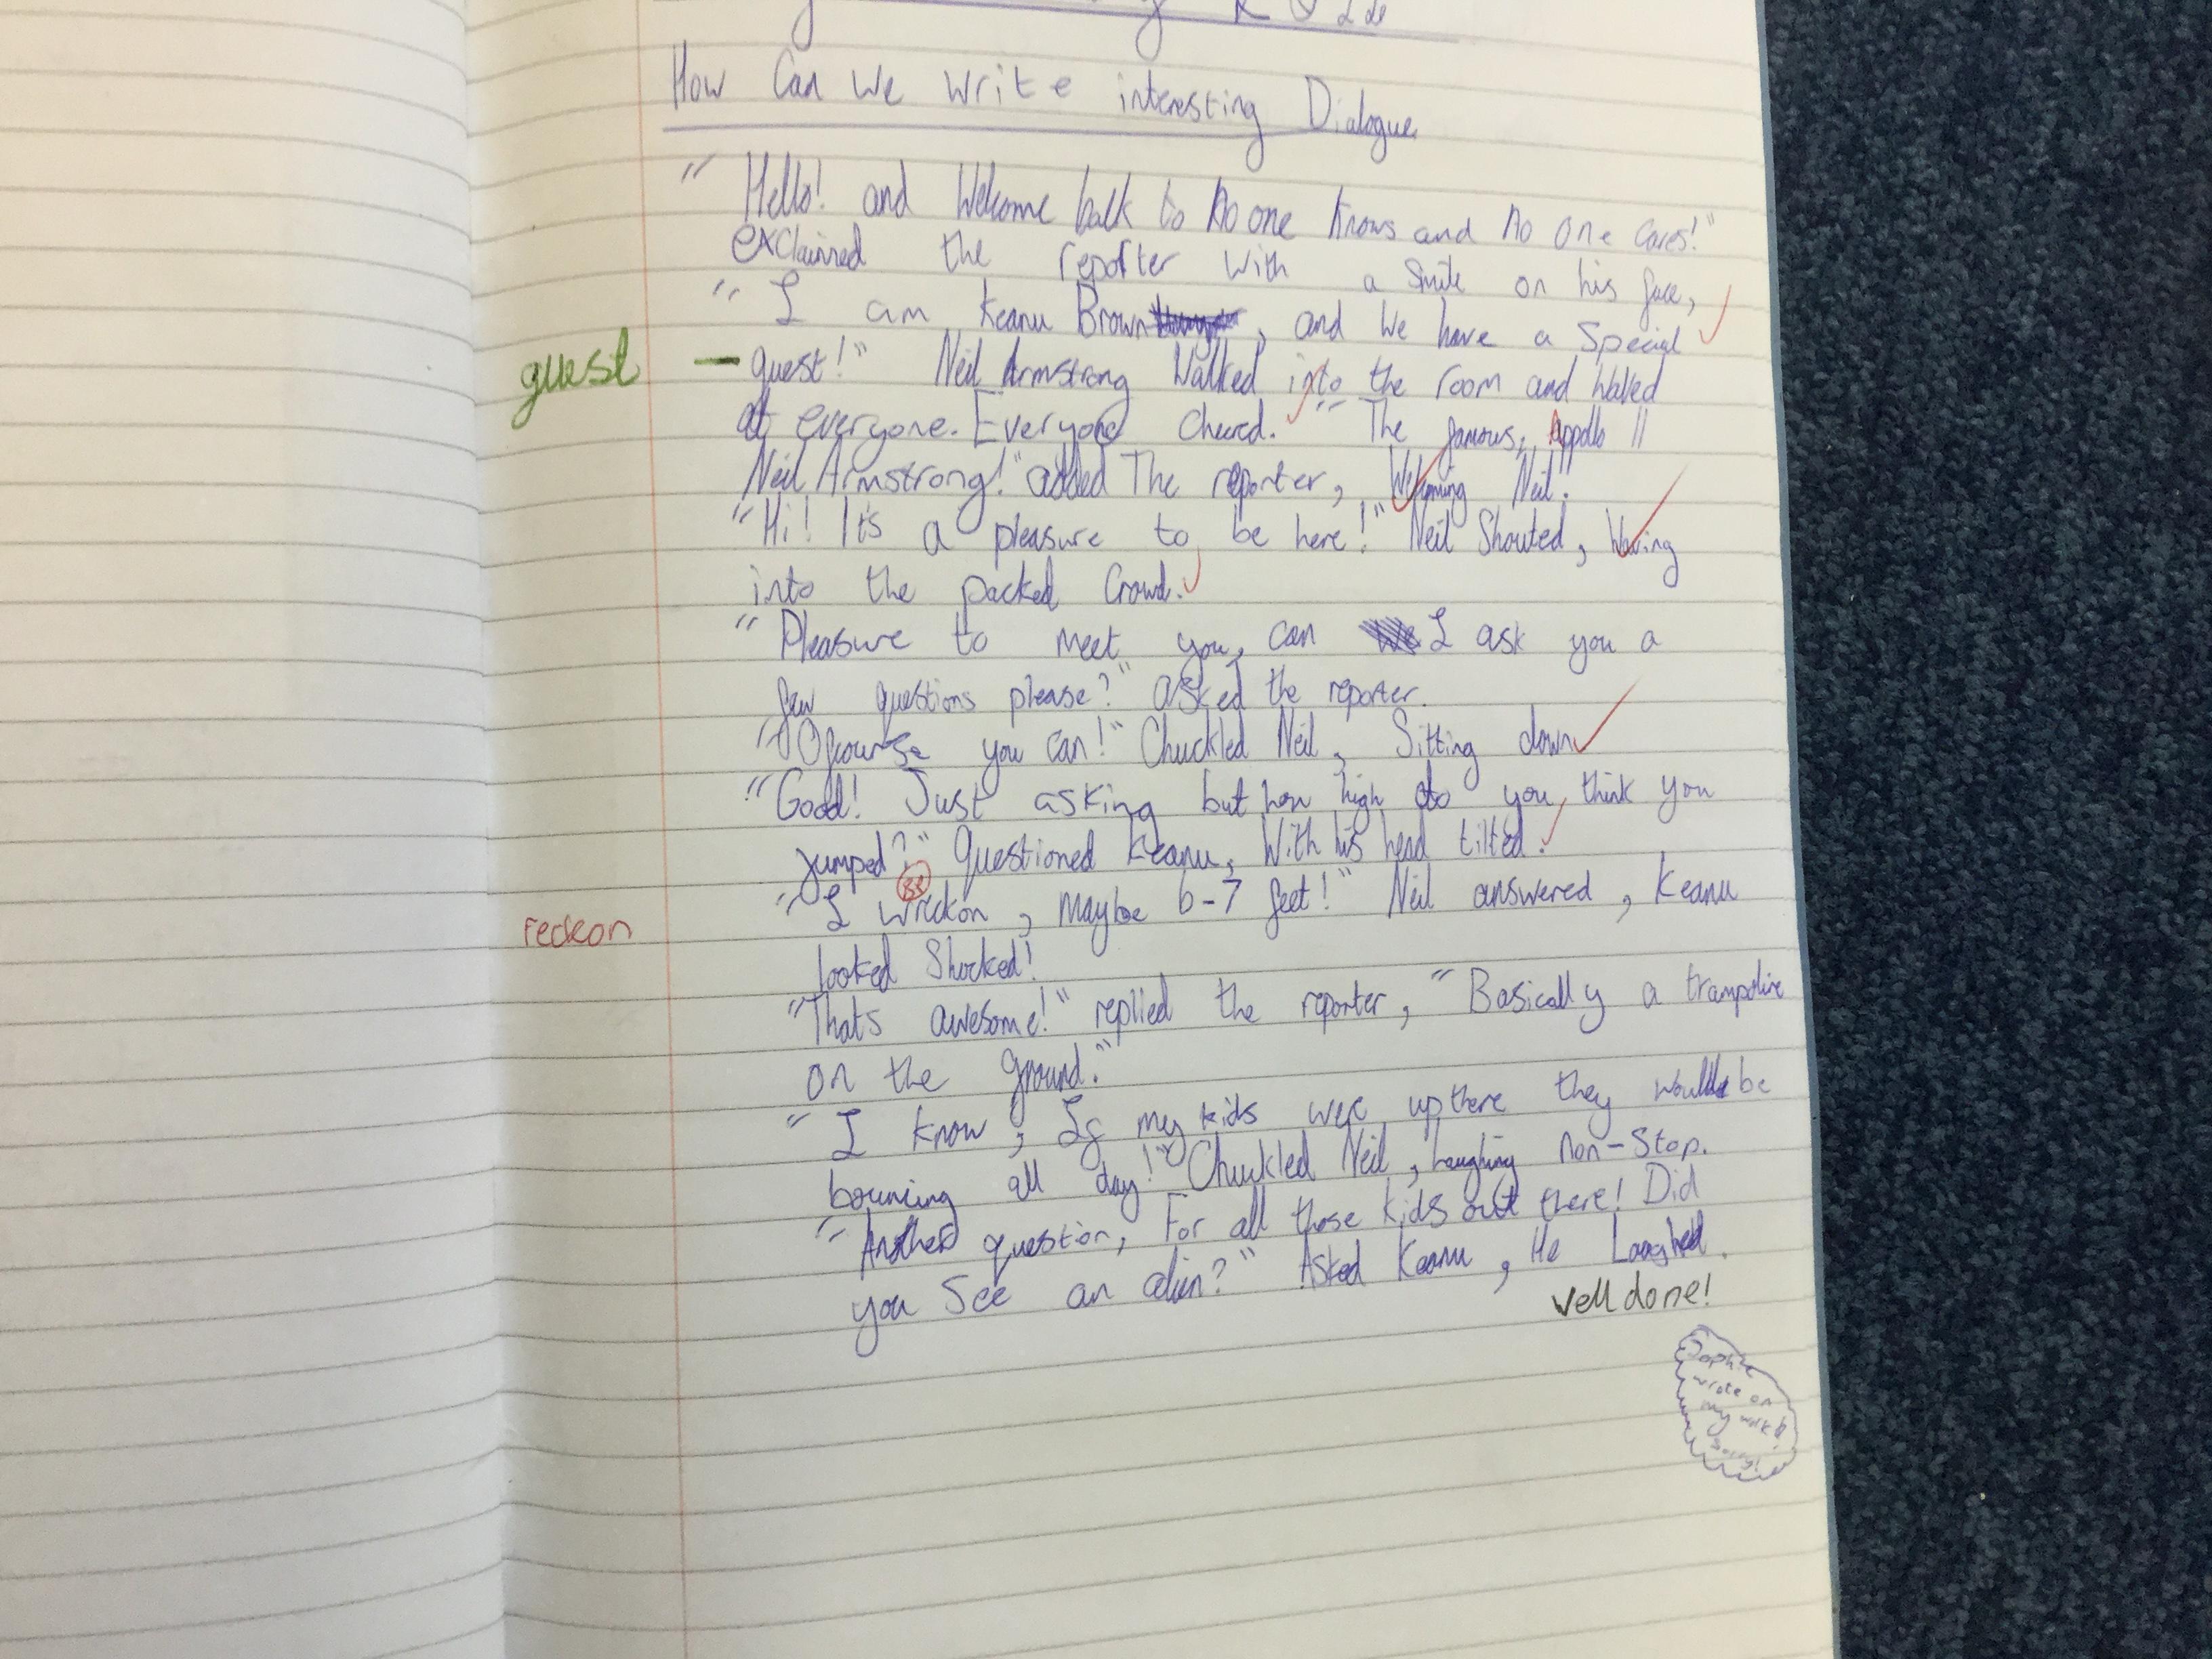 How Can We Write interesting Dialogue
"Hello! and Welcome back to No one knows and no one cares!"
exclaimed the reporter with a smile on his face,
"I am Keanu Brown, and We have a Special
guest - quest!" Neil Armstrong Walked into the room and waved
at everyone. Everyone cheered. "The famous, Appollo 11
Neil Armstrong!" added The reporter, Welcoming Neil!
"Hi! It's a pleasure to be here!" Neil Shouted, Waving
into the packed Crowd.
"Pleasure to meet you, can I ask you a
few questions please?" asked the reporter.
"Ofcourse you can!" Chuckled Neil, Sitting down
"Good! Just asking but how high do you think you
jumped?" Questioned Keanu, With his head tilted.
"I Wrickon, maybe 6-7 feet!" Neil answered, Keanu
reckon
looked Shocked!
"Thats awesome!" replied the reporter, "Basically a trampoline
on the ground."
"I know, If my kids were up there they would be
bouncing all day!" Chuckled Neil, Laughing non-Stop.
"Another question, For all those kids out there! Did
you See an alien?" Asked Keanu, He Laughed.
Well done!
Sophie
wrote on
my work!
Sorry!